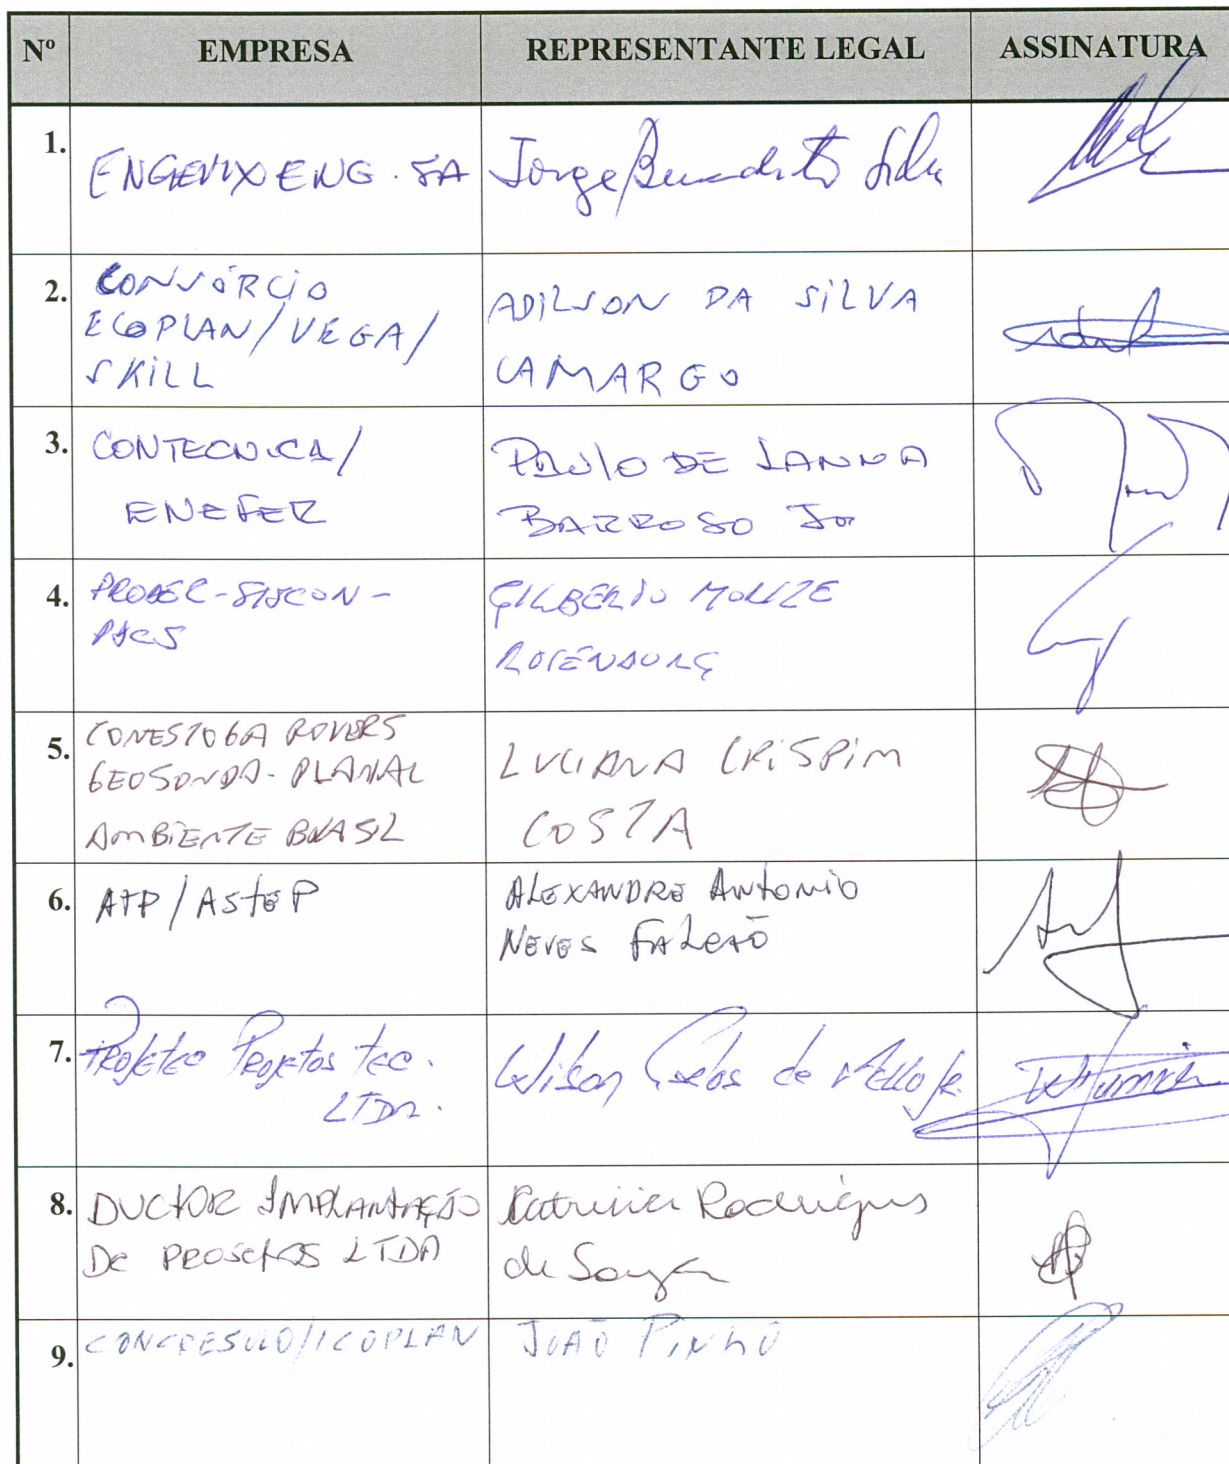 Nº EMPRESA REPRESENTANTE LEGAL ASSINATURA
1. ENGEVIX ENG. SA Jorge Benedito Silva
2. CONSÓRCIO
ECOPLAN/VEGA/
SKILL
ADILSON DA SILVA
CAMARGO
3. CONTECNICA/
ENEFER
PAULO DE LANNA
BARROSO Jr
4. PROGER-SISCON-
PACS
GILBERTO
5. CONESTOGA ROVERS
GEOSONDA-PLANAL
AMBIENTE BRASIL
LUCIANA CRISPIM
COSTA
6. ATP/ASTEP
ALEXANDRE ANTONIO
NEVES FALCÃO
7. PROJETEC PROJETOS TEC.
LTDA.
Wilson de Mello Jr.
8. DUCTOR IMPLANTAÇÃO
DE PROJETOS LTDA
Patricia Rodrigues
de Souza
9. CONCRESOLO/ICOPLAN JOÃO PINHO